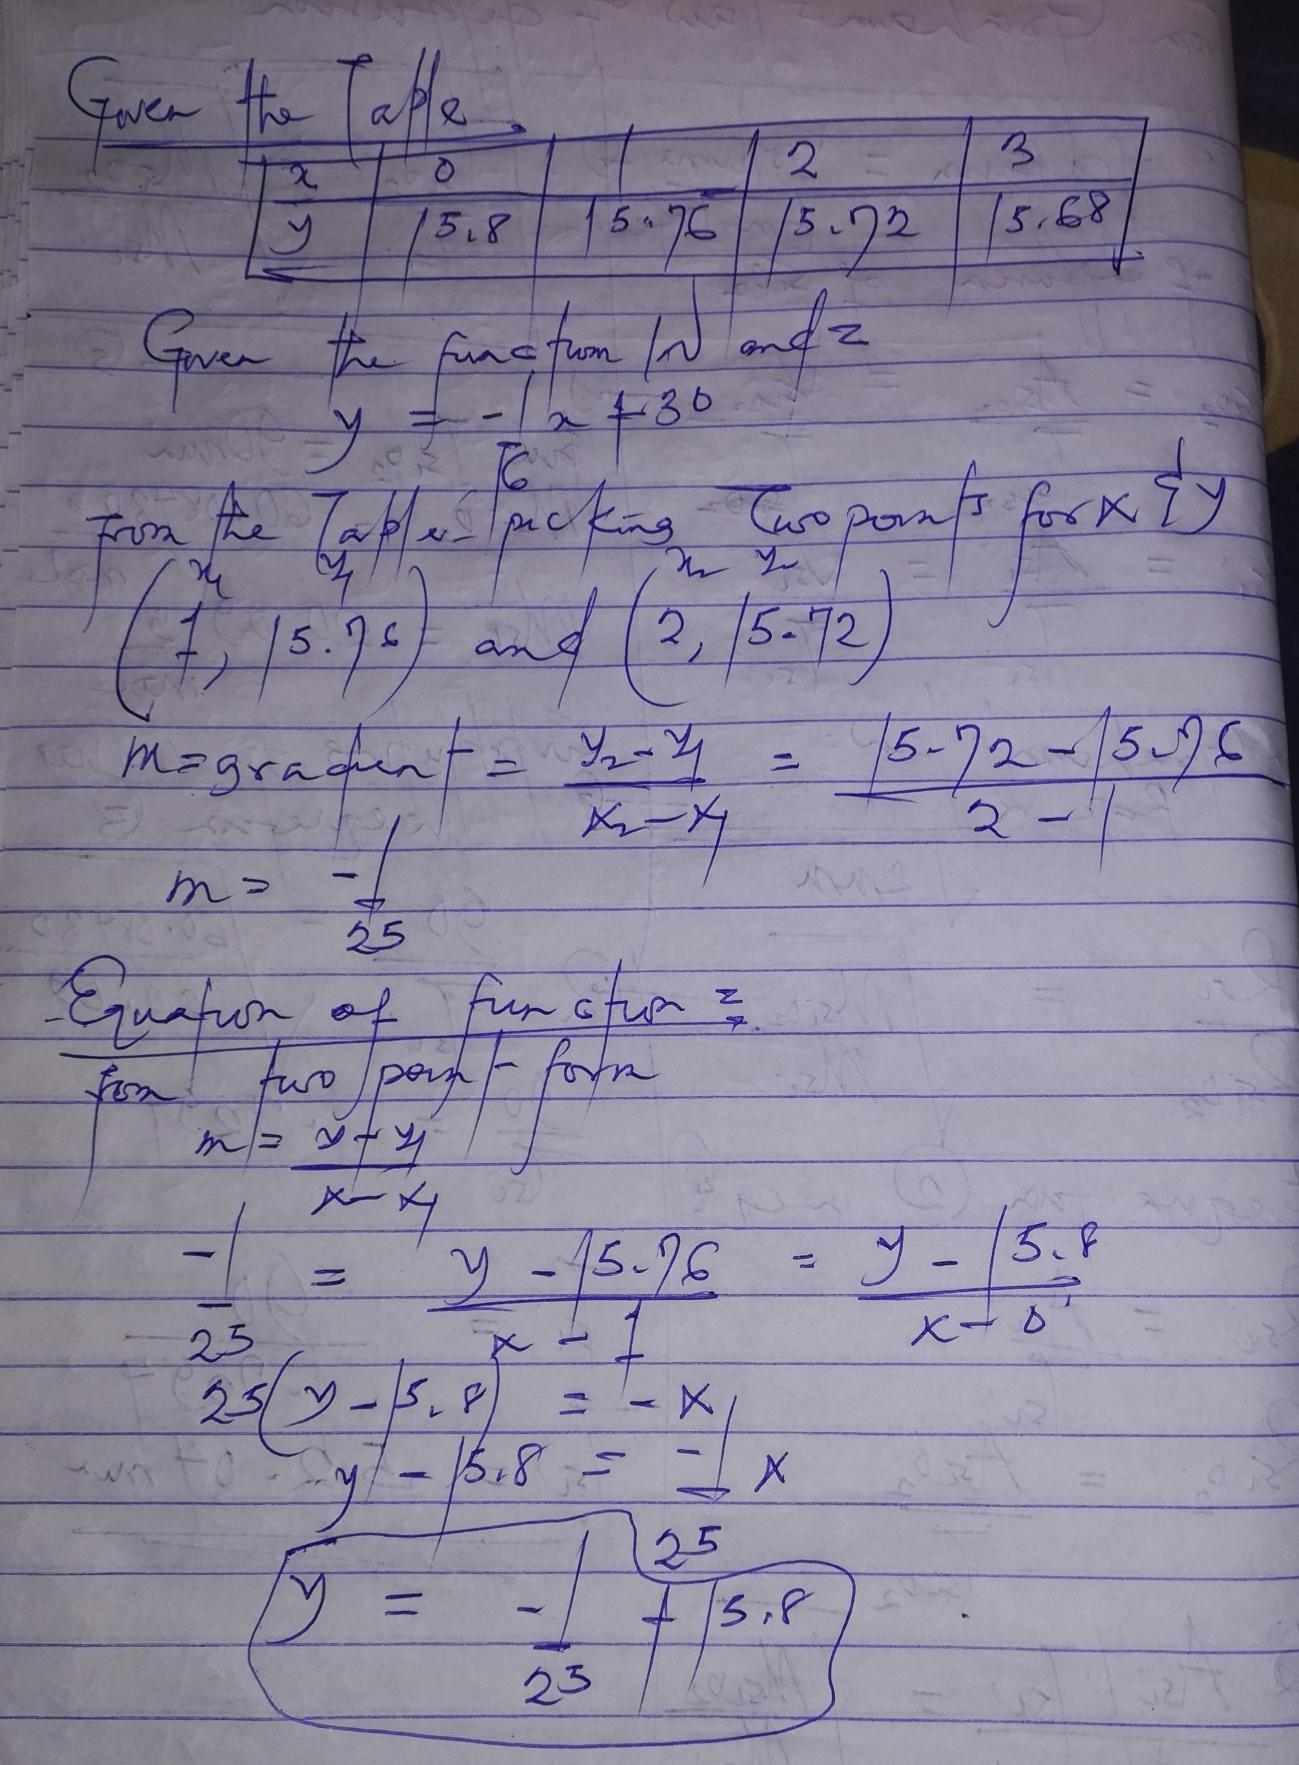 Given the Table
x 0 1 2 3
y 15.8 15.76 15.72 15.68
Given the function and =
y = -1 x + 30
6
From the Table picking Two points for x & y
x1 y1 x2 y2
(1, 15.76) and (2, 15.72)
m = gradient = y2 - y1 = 15.72 - 15.76
x2 - x1 2 - 1
m = -1
25
Equation of function =
from two point form
m = y - y1
x - x1
-1 = y - 15.76 = y - 15.8
25 x - 1 x - 0
25(y - 15.8) = -x
y - 15.8 = -1 x
25
y = -1 + 15.8
25